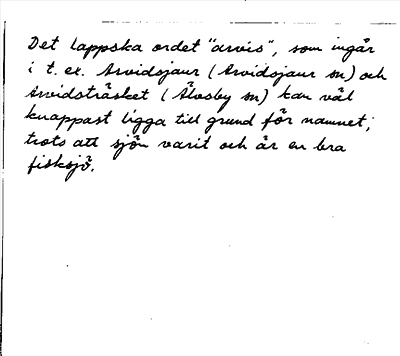 Det lappska ordet "arvis", som ingår
i t. ex. Arvidsjaur (Arvidsjaur sn) och
Arvidsträsket (Älvsby sn) kan väl
knappast ligga till grund för namnet;
trots att sjön varit och är en bra
fisksjö.